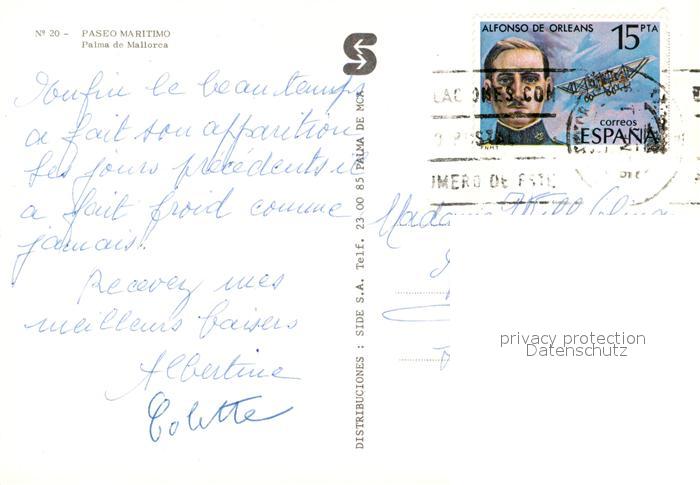 Nº 20 - PASEO MARITIMO
Palma de Mallorca
Enfin le beau temps
a fait son apparition
Les jours précédents il
a fait froid comme
jamais.
Recevez mes
meilleurs baisers
Albertine
Colette
DISTRIBUCIONES : SIDE S.A. Telf. 23 00 85 PALMA DE MCA
ALFONSO DE ORLEANS 15 PTA
correos
ESPAÑA
FNMT
NUMERO DE
Madame
privacy protection
Datenschutz